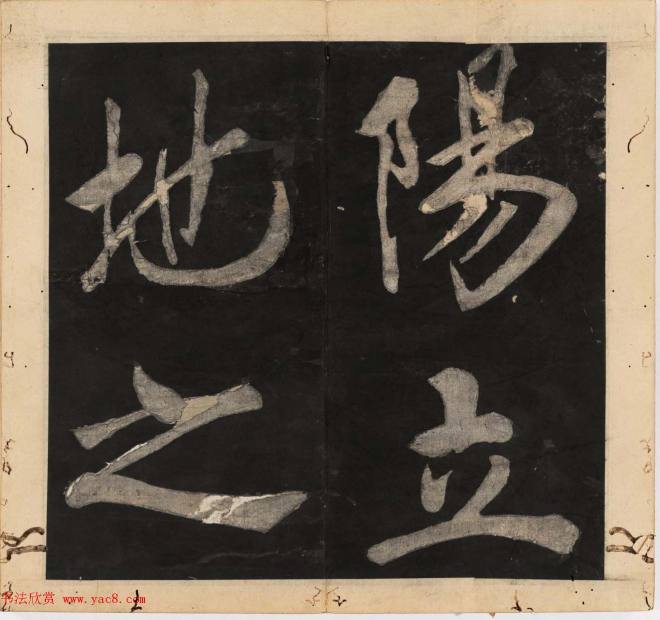 陽立
地之
书法欣赏 www.yac8.com